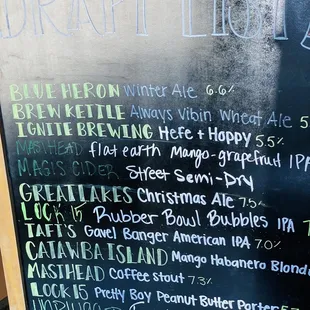 DRAFT LIST
BLUE HERON Winter Ale 6.6%
BREW KETTLE Always Vibin Wheat Ale 5
IGNITE BREWING Hefe + Hoppy 5.5%
MASTHEAD flat earth Mango-grapefruit IPA
MAGIS CIDER Street Semi-Dry
GREAT LAKES Christmas Ale 7.5%
LOCK 15 Rubber Bowl Bubbles IPA 7
TAFT'S Gavel Banger American IPA 7.0%
CATAWBA ISLAND Mango Habanero Blonde
MASTHEAD Coffee Stout 7.3%
LOCK 15 Pretty Boy Peanut Butter Porter